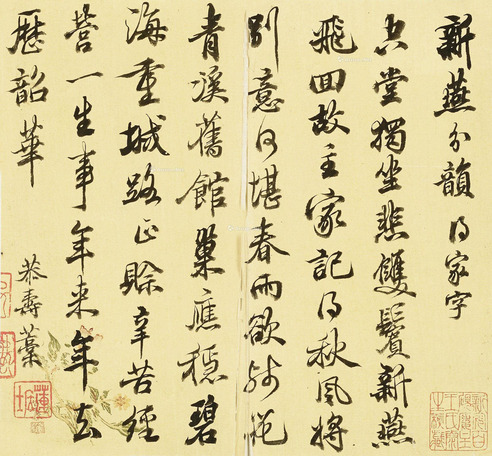 新燕分韻得家字
空堂獨坐悲雙鬢新燕
飛回故主家記得秋風將
別意何堪春雨欲
青溪舊館巢應穩碧
海重城路正賒辛苦經
營一生事年來年去
歷韶華
恭壽藁